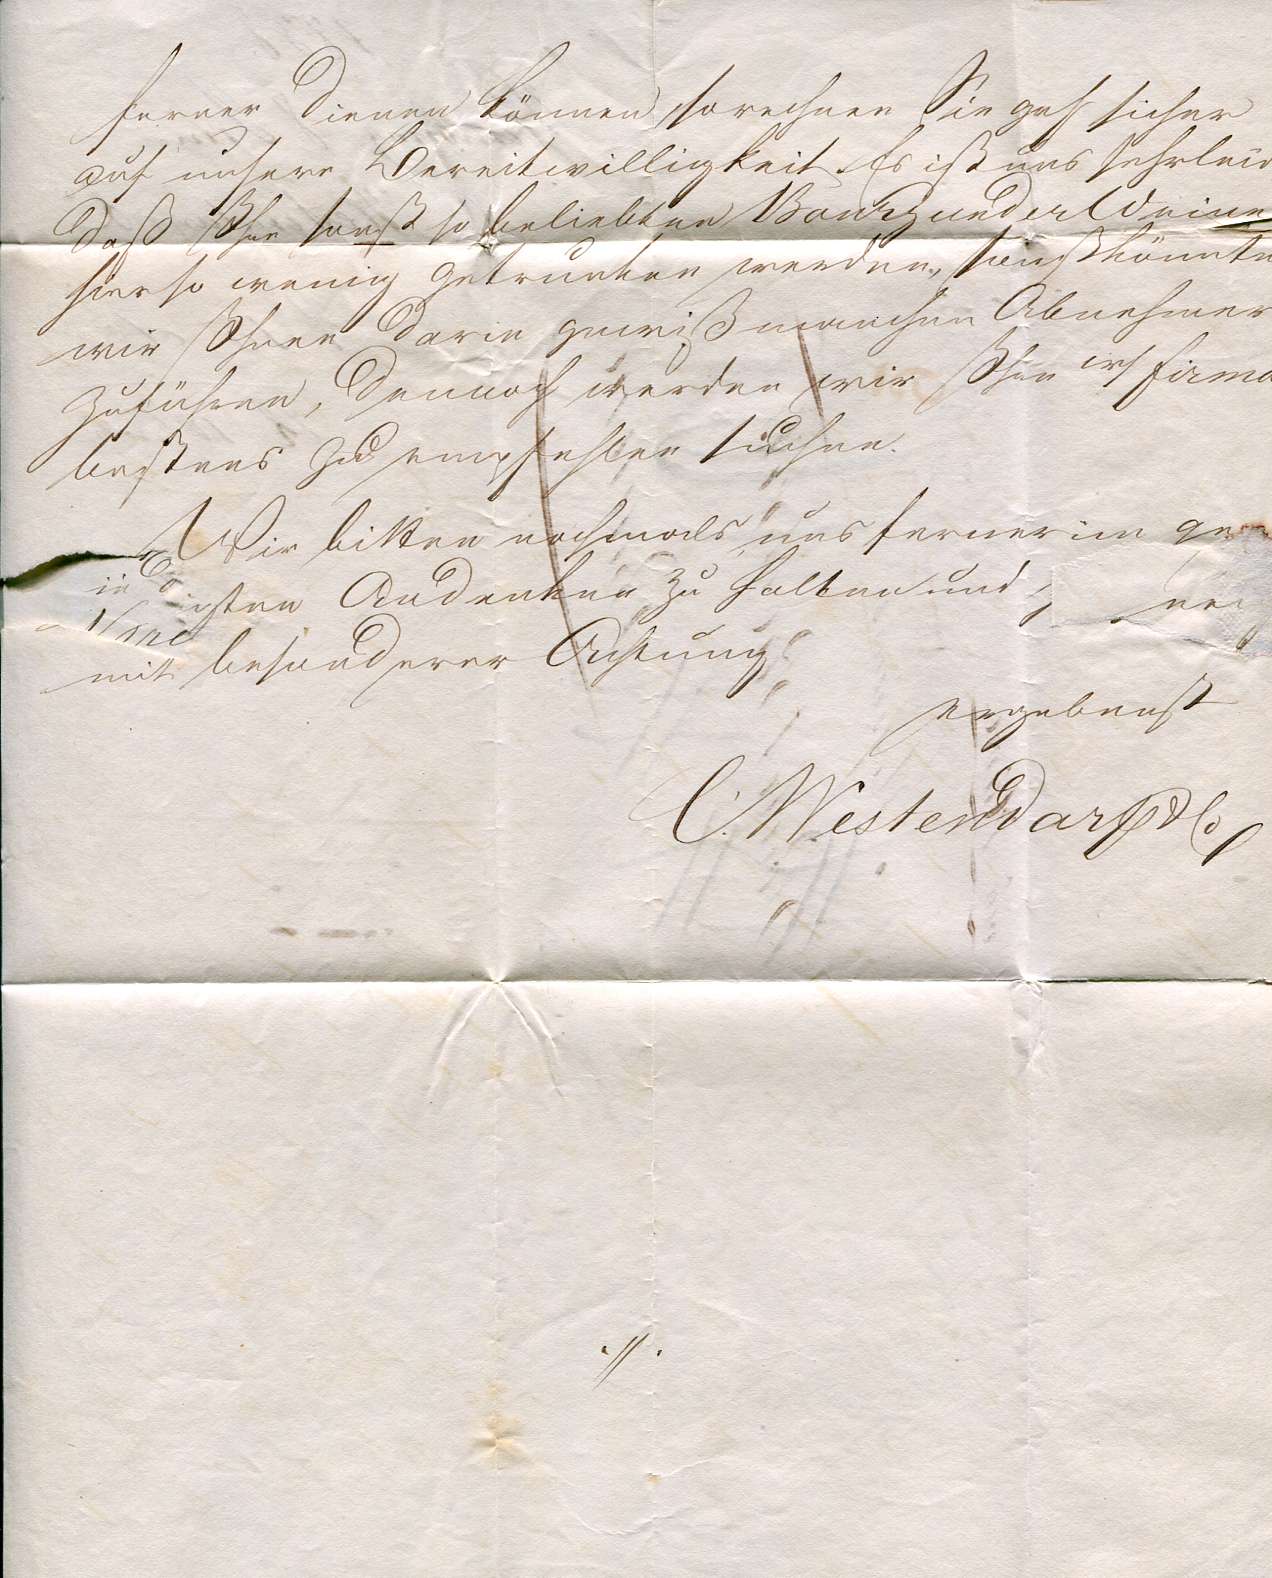 ferner dienen können, so rechnen Sie gef sicher
auf unsere Bereitwilligkeit. Es ist uns sehr leid
daß Ihre sonst so beliebten Bourgunder Weine
hier so wenig getrunken werden, sonst könnte
wir Ihnen darin gewiß manchen Abnehmer
zuführen, dennoch werden wir Ihre Firma
bestens zu empfehlen suchen.
Wir bitten nochmals uns ferner im
Andenken zu halten und
mit besonderer Achtung
ergebenst
C. Westendarp & Co